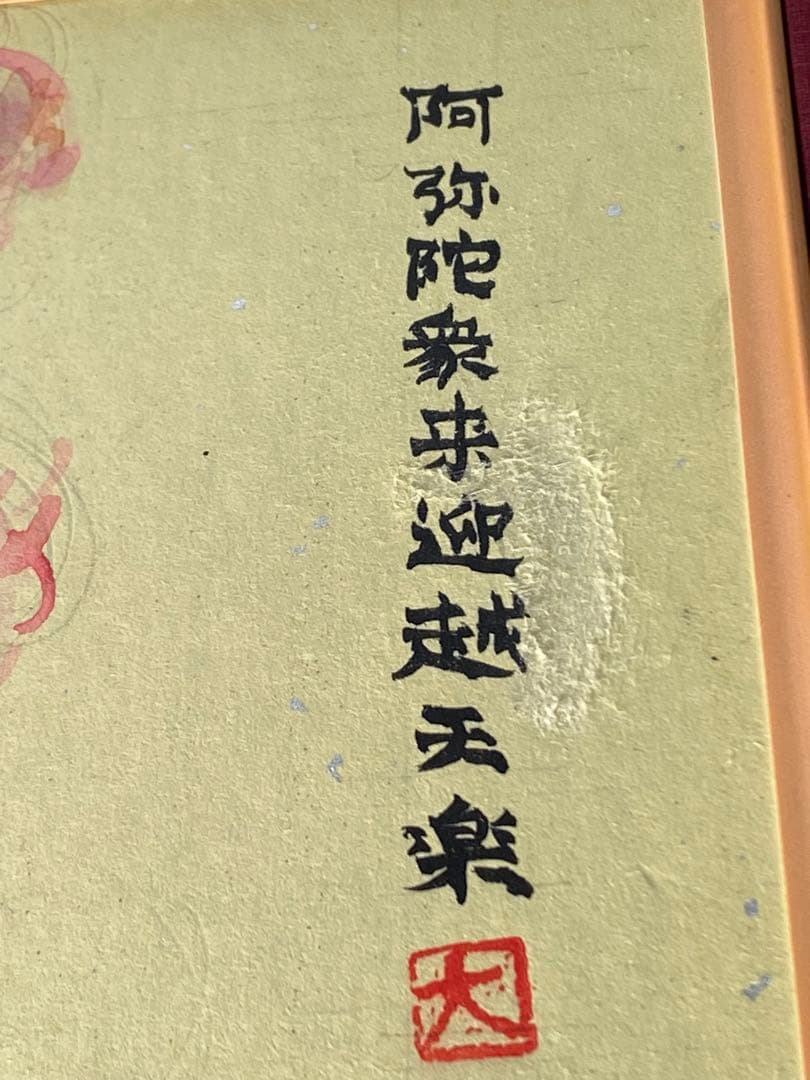 阿弥陀衆来迎越天楽
大